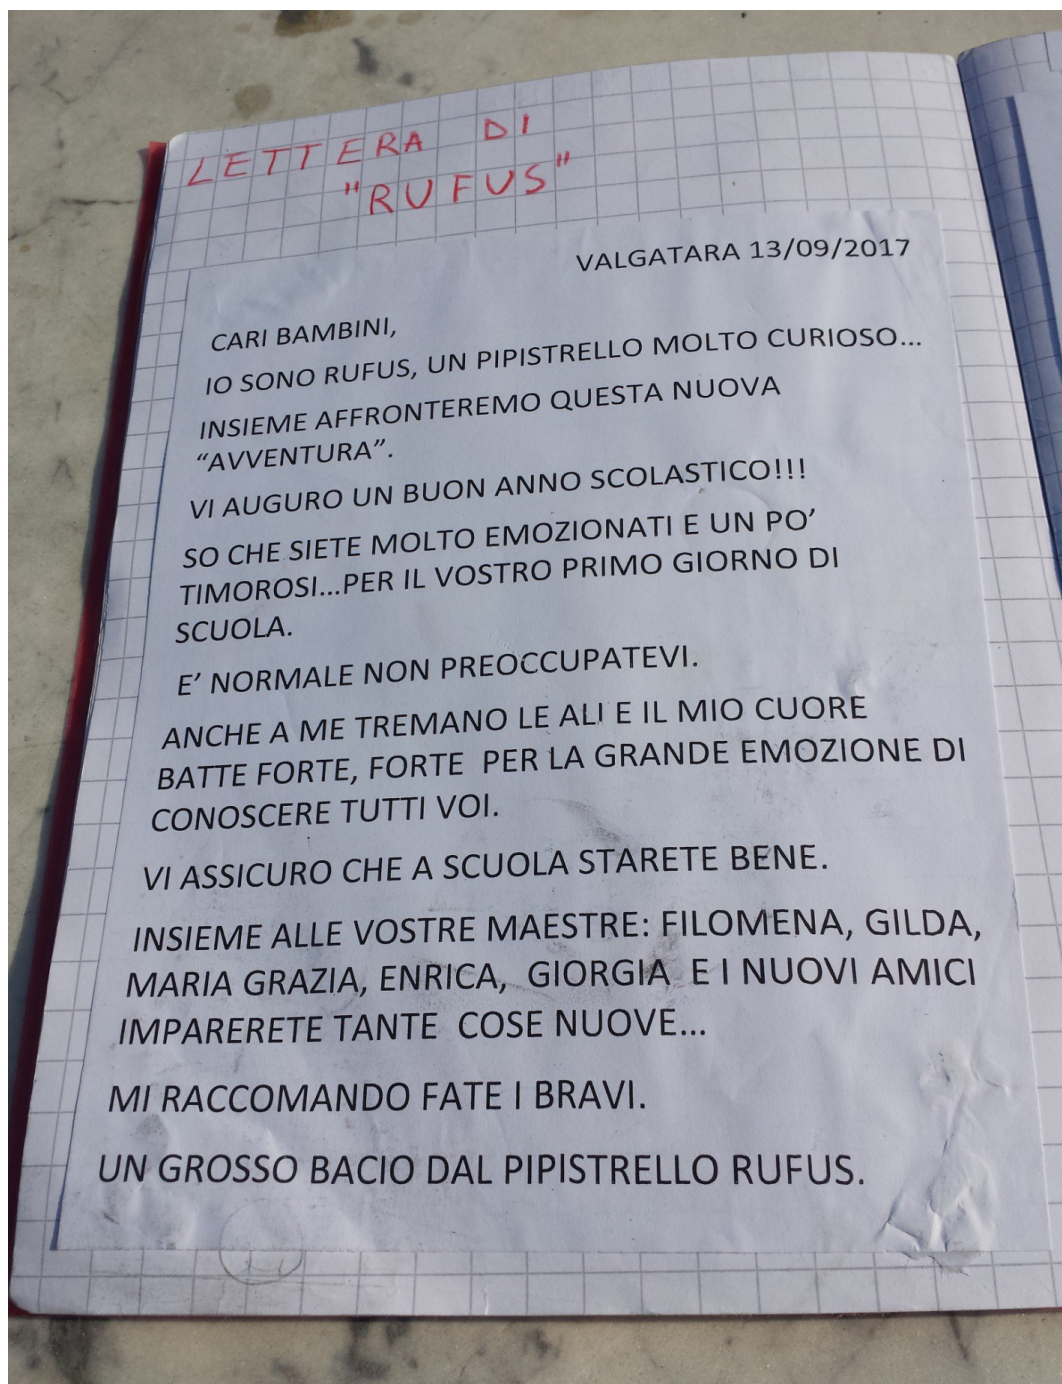 LETTERA DI
"RUFUS"
VALGATARA 13/09/2017
CARI BAMBINI,
IO SONO RUFUS, UN PIPISTRELLO MOLTO CURIOSO...
INSIEME AFFRONTEREMO QUESTA NUOVA
“AVVENTURA”.
VI AUGURO UN BUON ANNO SCOLASTICO!!!
SO CHE SIETE MOLTO EMOZIONATI E UN PO’
TIMOROSI...PER IL VOSTRO PRIMO GIORNO DI
SCUOLA.
E’ NORMALE NON PREOCCUPATEVI.
ANCHE A ME TREMANO LE ALI E IL MIO CUORE
BATTE FORTE, FORTE PER LA GRANDE EMOZIONE DI
CONOSCERE TUTTI VOI.
VI ASSICURO CHE A SCUOLA STARETE BENE.
INSIEME ALLE VOSTRE MAESTRE: FILOMENA, GILDA,
MARIA GRAZIA, ENRICA, GIORGIA E I NUOVI AMICI
IMPARERETE TANTE COSE NUOVE...
MI RACCOMANDO FATE I BRAVI.
UN GROSSO BACIO DAL PIPISTRELLO RUFUS.